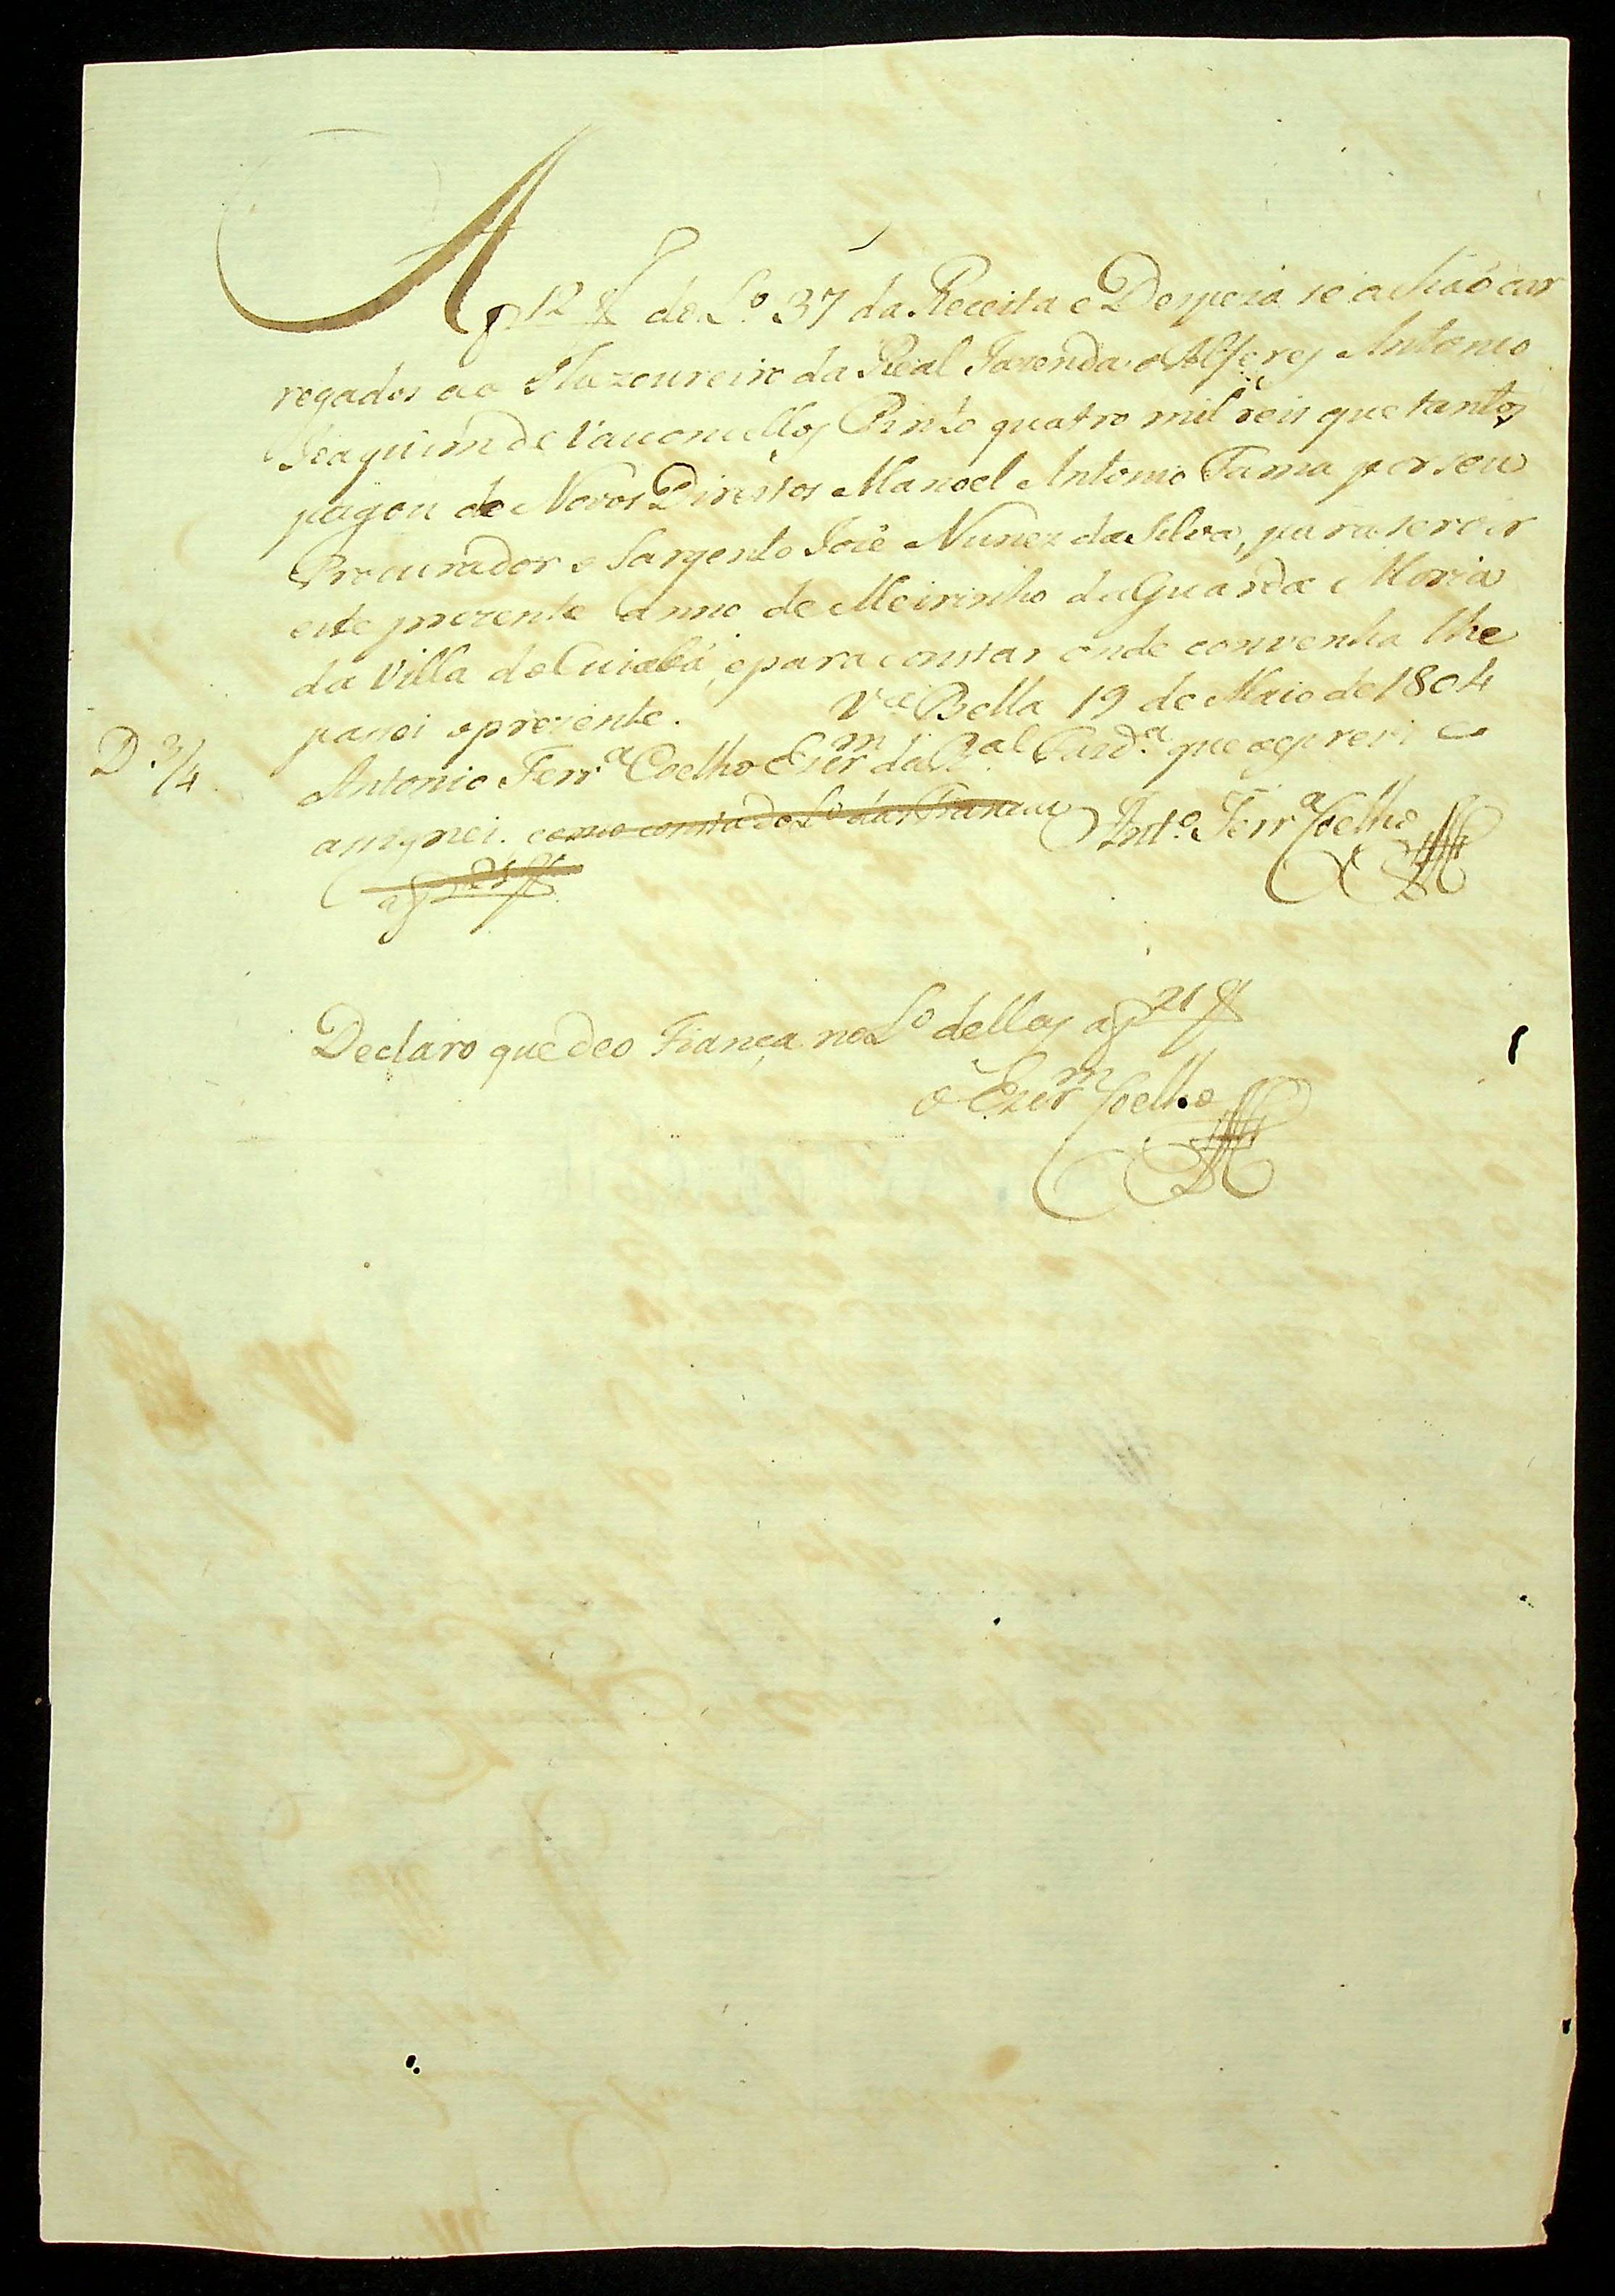 Af 12 V do L.o 37 da Receita e Despeza se achaõ car
regados ao Thezoureiro da Real Fazenda o Alferes Antonio
Joaquim de Vasconcellos Pinto quatro mil reis que tantos
pagou de Novos Direitos Manoel Antonio Fama por seu
Procurador o Sargento José Nunez da Silva, para servir
este prezente anno de Meirinho da Guarda Moria
da Villa do Cuiabá, e para constar onde convenha lhe
passei o prezente. V.a Bella 19 de Maio de 1804
D 3/4
Antonio Ferr.a Coelho Escr.m da R.al Faz.da que o escrevi e
assignei. como consta do L.o das Fianças Ant.o Ferr.a Coelho
af 21 V
Declaro que deo Fiança no L.o dellas af 21 V
o Escr.m Coelho